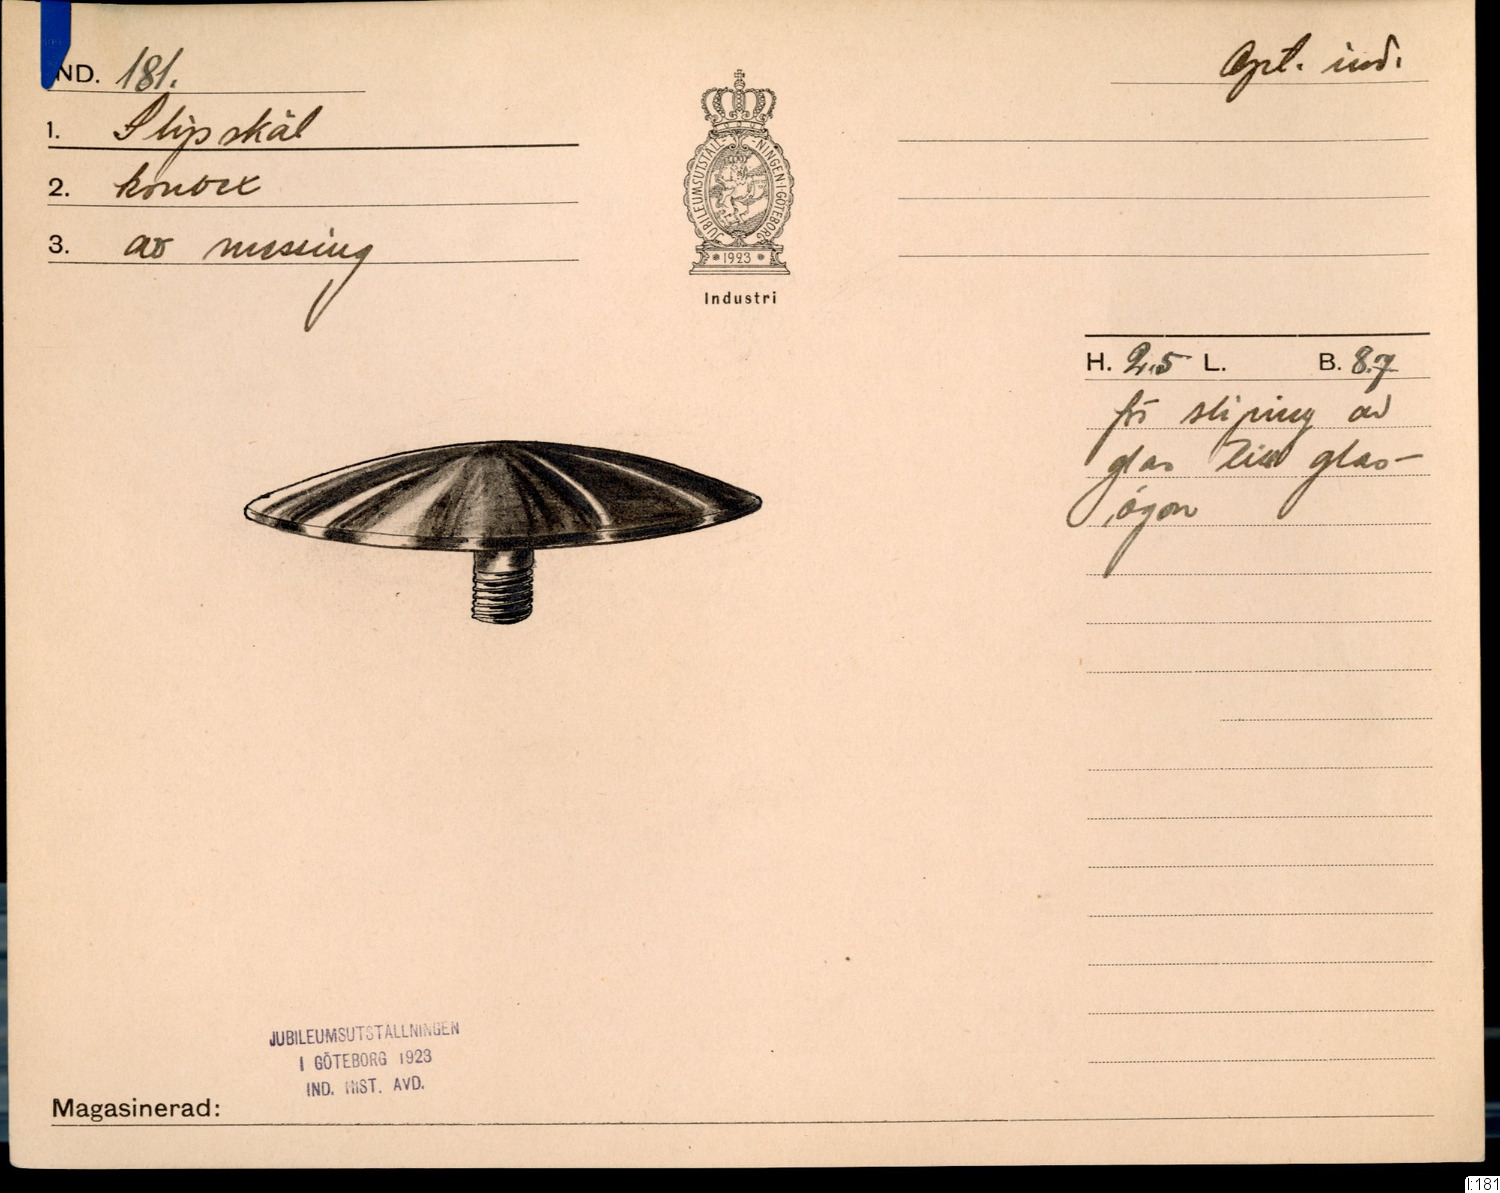 IND. 181.
Opt. ind.
1. Slipskål
2. konvex
3. av messing
JUBILEUMSUTSTÄLLNINGEN I GÖTEBORG
1923
Industri
H. 2.5 L. B. 8.7
för slipning av
glas till glas-
ögon
JUBILEUMSUTSTÄLLNINGEN
I GÖTEBORG 1923
IND. HIST. AVD.
Magasinerad:
I:181